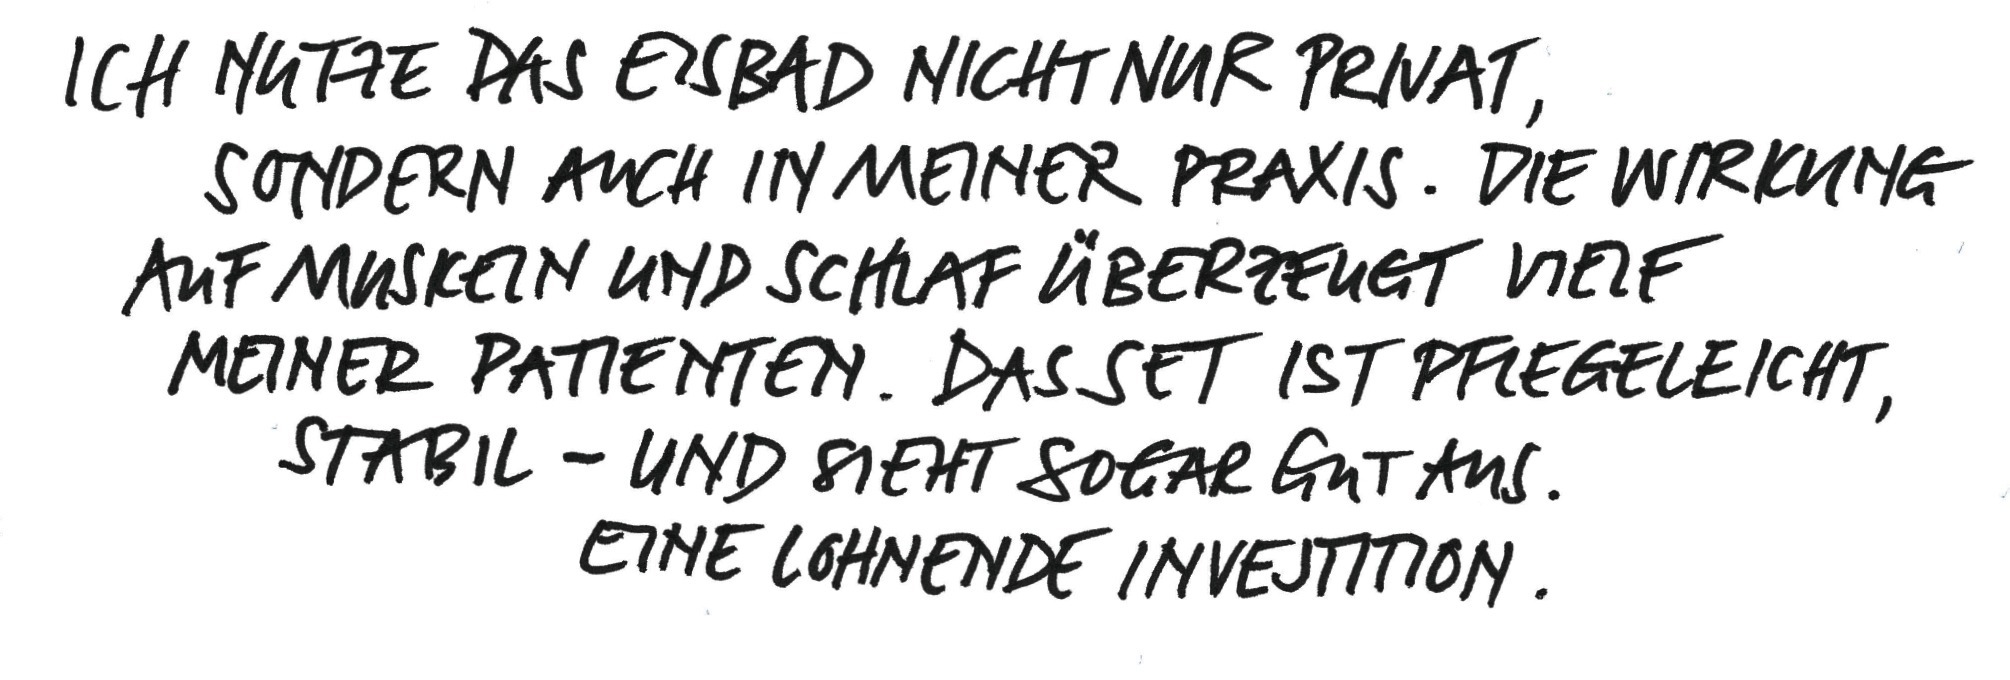 ICH NUTZE DAS EISBAD NICHT NUR PRIVAT,
SONDERN AUCH IN MEINER PRAXIS. DIE WIRKUNG
AUF MUSKELN UND SCHLAF ÜBERZEUGT VIELE
MEINER PATIENTEN. DAS SET IST PFLEGELEICHT,
STABIL – UND SIEHT SOGAR GUT AUS.
EINE LOHNENDE INVESTITION.